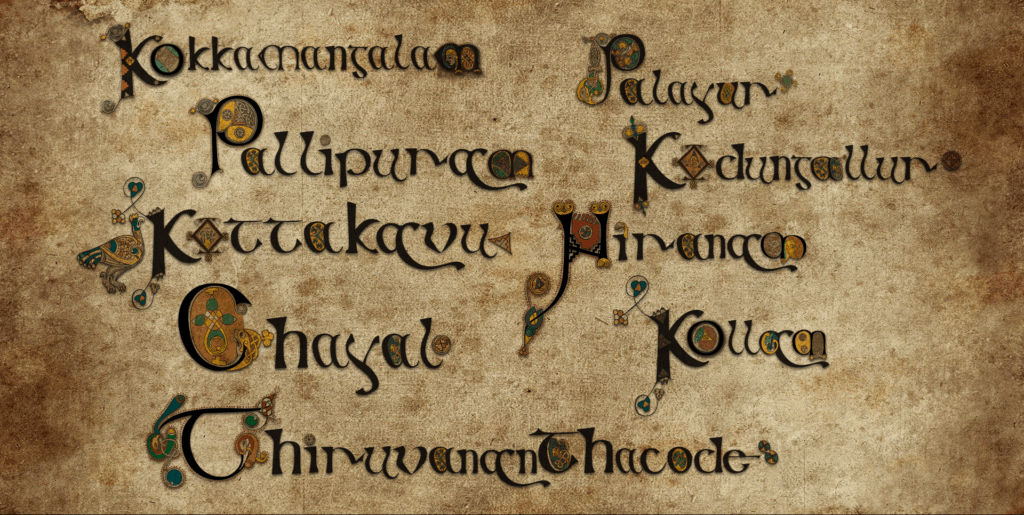 Kokkamangalam
Palayur
Pallipuram
Kodungallur
Kottakavu
Niranam
Chayal
Kollam
Thiruvananthacode